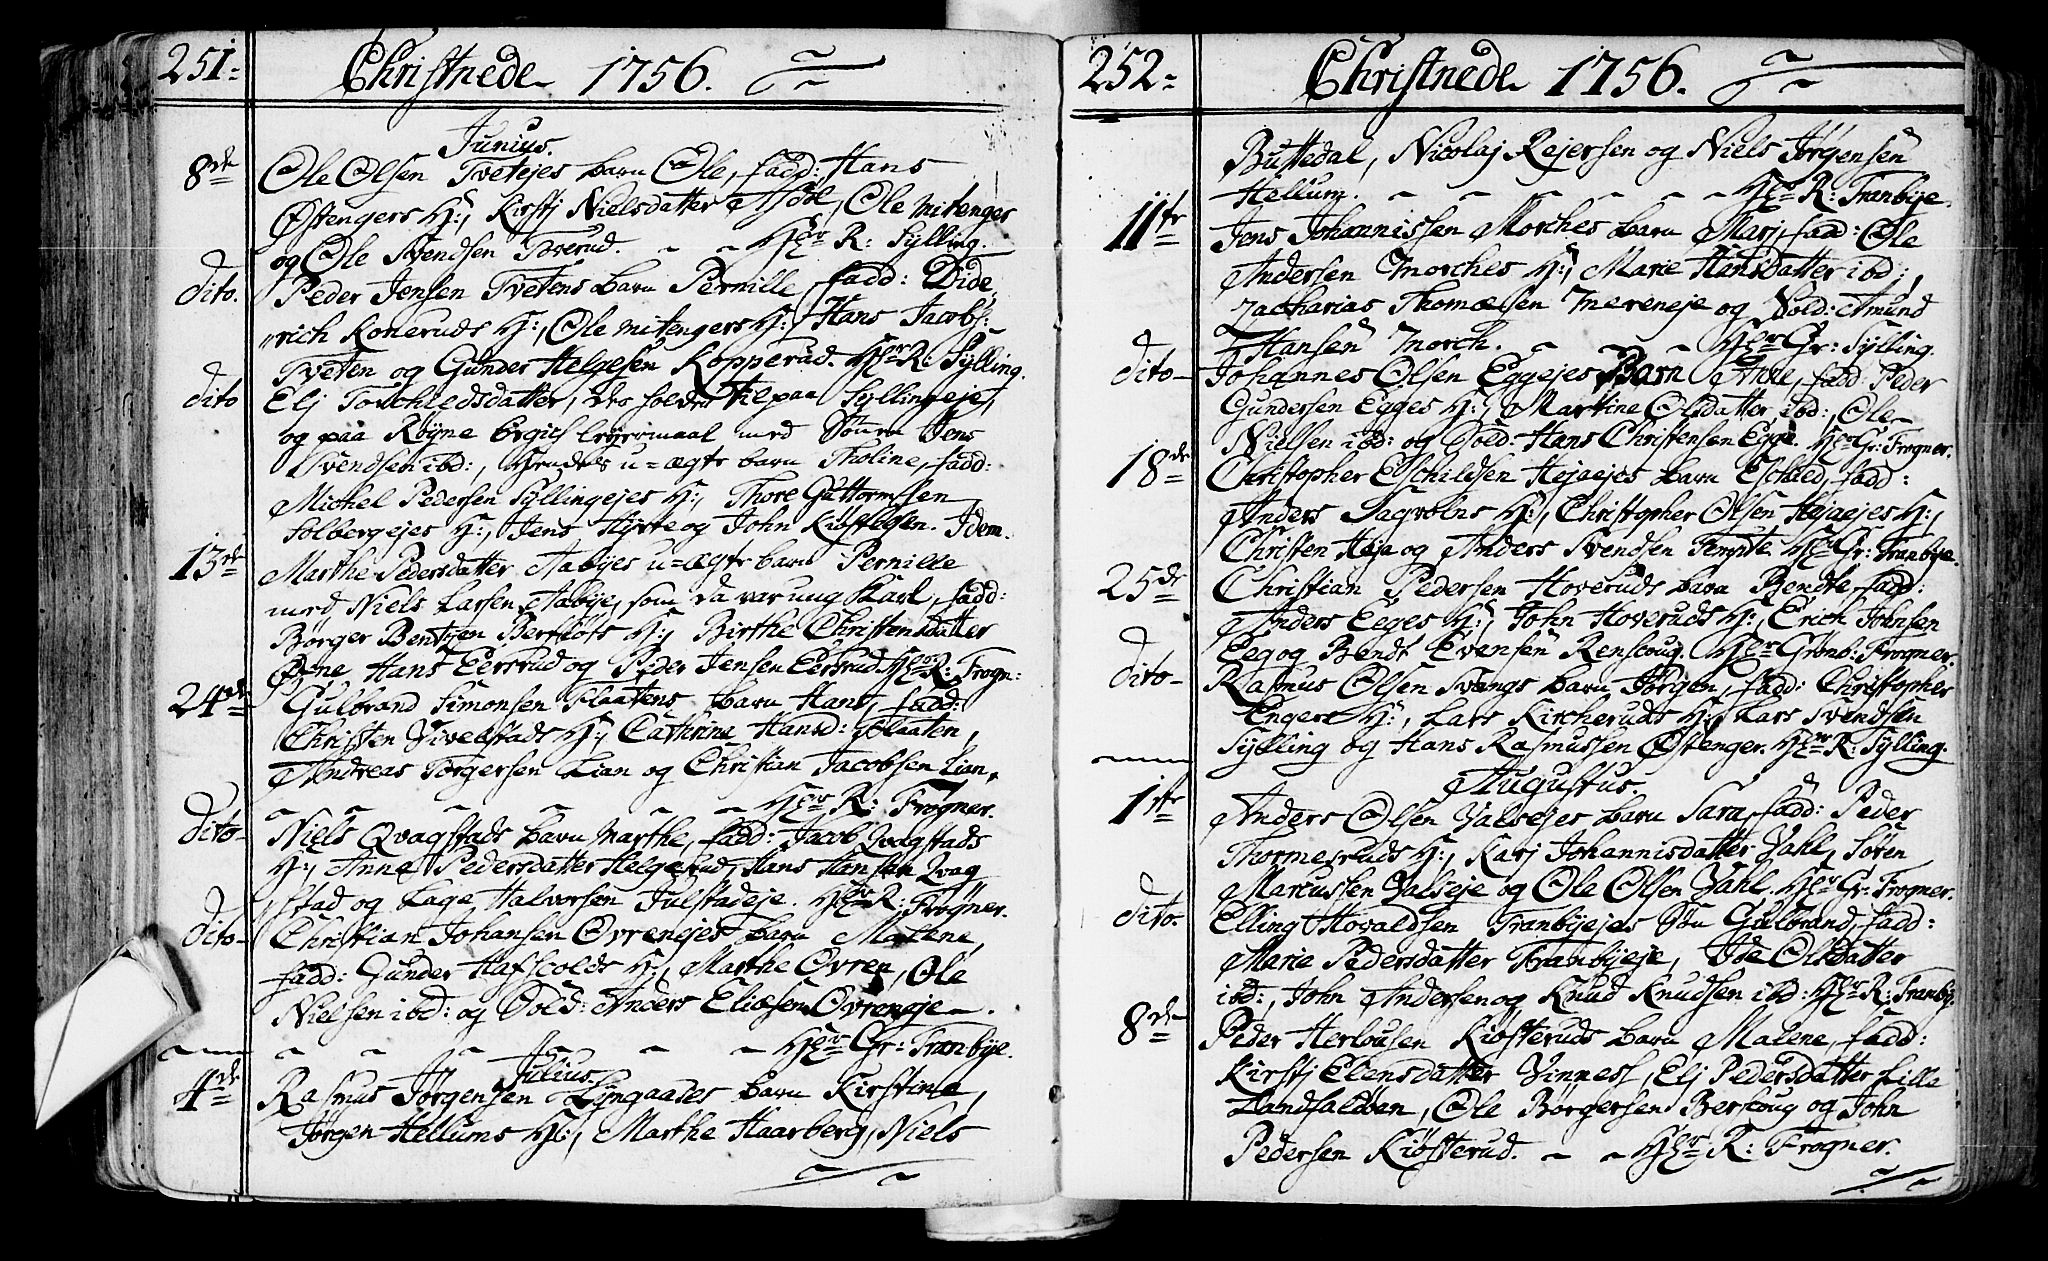 251.
Christnede 1756.
Junius.
8de Ole Olsen Tvetejes barn Ole, fadd: Hans
Østengers H:, Kirstj Nielsdatter Asdøl, Ole Mitenger
og Ole Svendsen Toverud. Hr R: Sylling.
dito. Peder Jensen Tvetens barn Pernille, fadd: Dide,
rich Koneruds H:, Ole Mitengers H:, Hans Jacobs:
Tveten og Gunder Helgesen Kopperud. Hr R: Sylling.
dito Elj Torchledsdatter, paa Syllingeje,
og paa Røyne lejermaal med Sønen Jens
Svendsen ibd:, u-ægte barn Tholine, fadd:
Michel Pedersen Syllingejes H:, Thore Guttormssen
Solbergejes H:, Jens og John Kiøstelsen. Idem.
13de Marthe Pedersdatter Aabyes u-ægte barn Pernille
med Niels Larsen Aabye, som da var ung Karl, fadd:
Børger Bentsen Berskots H:, Birthe Christensdatter
Hans Eersrud og Peder Jensen Eersrud. Hr R: Frogn:
24de Gulbrand Simonsen Flaatens barn Hans, fadd:
Christen Vivelstads H:, Cathrina Hansd: Flaaten,
Andreas Torgersen Lian og Christian Jacobsen Lian.
Hr R: Frogner.
dito Niels Qvagstads barn Marthe, fadd: Jacob Qvagstads
H:, Anne Pedersdatter Helgerud, Hans Hansen Qvag
stad og Lage Halvorsen Julstadeje. Hr R: Frogner.
dito Christian Johansen Øvrenejes barn Malene,
fadd: Gunder Hafscolds H:, Marthe Øvren, Ole
Nielsen ibd: og Sold: Anders Eliæsen Øvreneje.
Hr Gr: Tranbye.
Julius.
4de Rasmus Jørgensen Lyngaases barn Kirstine,
Jørgen Hellums H:, Marthe Haarberg, Niels
252.
Christnede 1756.
Buttedal, Nicolaj Rejersen og Niels Jørgensen
Hellum. Hr R: Tranbye.
11te Jens Johannissen Morches barn Marj, fad: Ole
Andersen Morches H:, Marie Hansdatter ibd:,
Zacharias Thomæsen Mereneje og Sold: Amund
Hansen Morch. Hr Gr: Sylling.
dito Johannes Olsen Eggejes Barn Anne, fadd: Peder
Gundersen Egges H:, Martine Olsdatter ibd:, Ole
Nielsen ibd: og Sold: Hans Christensen Egge. Hr Gr: Frogner.
18de Christopher Eschildsen Hejaejes barn Eschild, fadd:
Anders Sagvolns H:, Christopher Olsen Hejaejes H:,
Christen Heja og Anders Svendsen Tempte. Hr Gr: Tranbye.
25de Christian Pedersen Hoveruds barn Bendte, fadd:
Anders Eeges H:, John Hoveruds H:, Erich Johnsen
Eeg og Bendt Evensen Renscoug. Hr Grønb: Frogner.
dito Rasmus Olsen Svangs barn Jørgen, fadd: Christopher
Engers H:, Lars Kircheruds H:, Lars Svendsen
Sylling og Hans Rasmussen Østenger. Hr R: Sylling.
Augustus.
1te Anders Olsen Valsejes barn Sara, fadd: Peder
Thormesruds H:, Karj Johannisdatter Vahl, Søren
Marcussen Valseje og Ole Olsen Vahl. Hr Gr: Frogner.
dito. Elling Hovaldsen Tranbyejes Søn Gulbrand, fadd:
Marie Pedersdatter Tranbyeje, Ide Olsdatter
ibd:, John Andersen og Knud Knudsen ibd: Hr R: Tranby.
8de Peder Herlousen Kiøsteruds barn Malene, fadd:
Kirstj Elensdatter Vinness, Elj Pedersdatter Lille
Landfalden, Ole Børgersen Berscoug og John
Pedersen Kiøsterud. Hr R: Frogner.